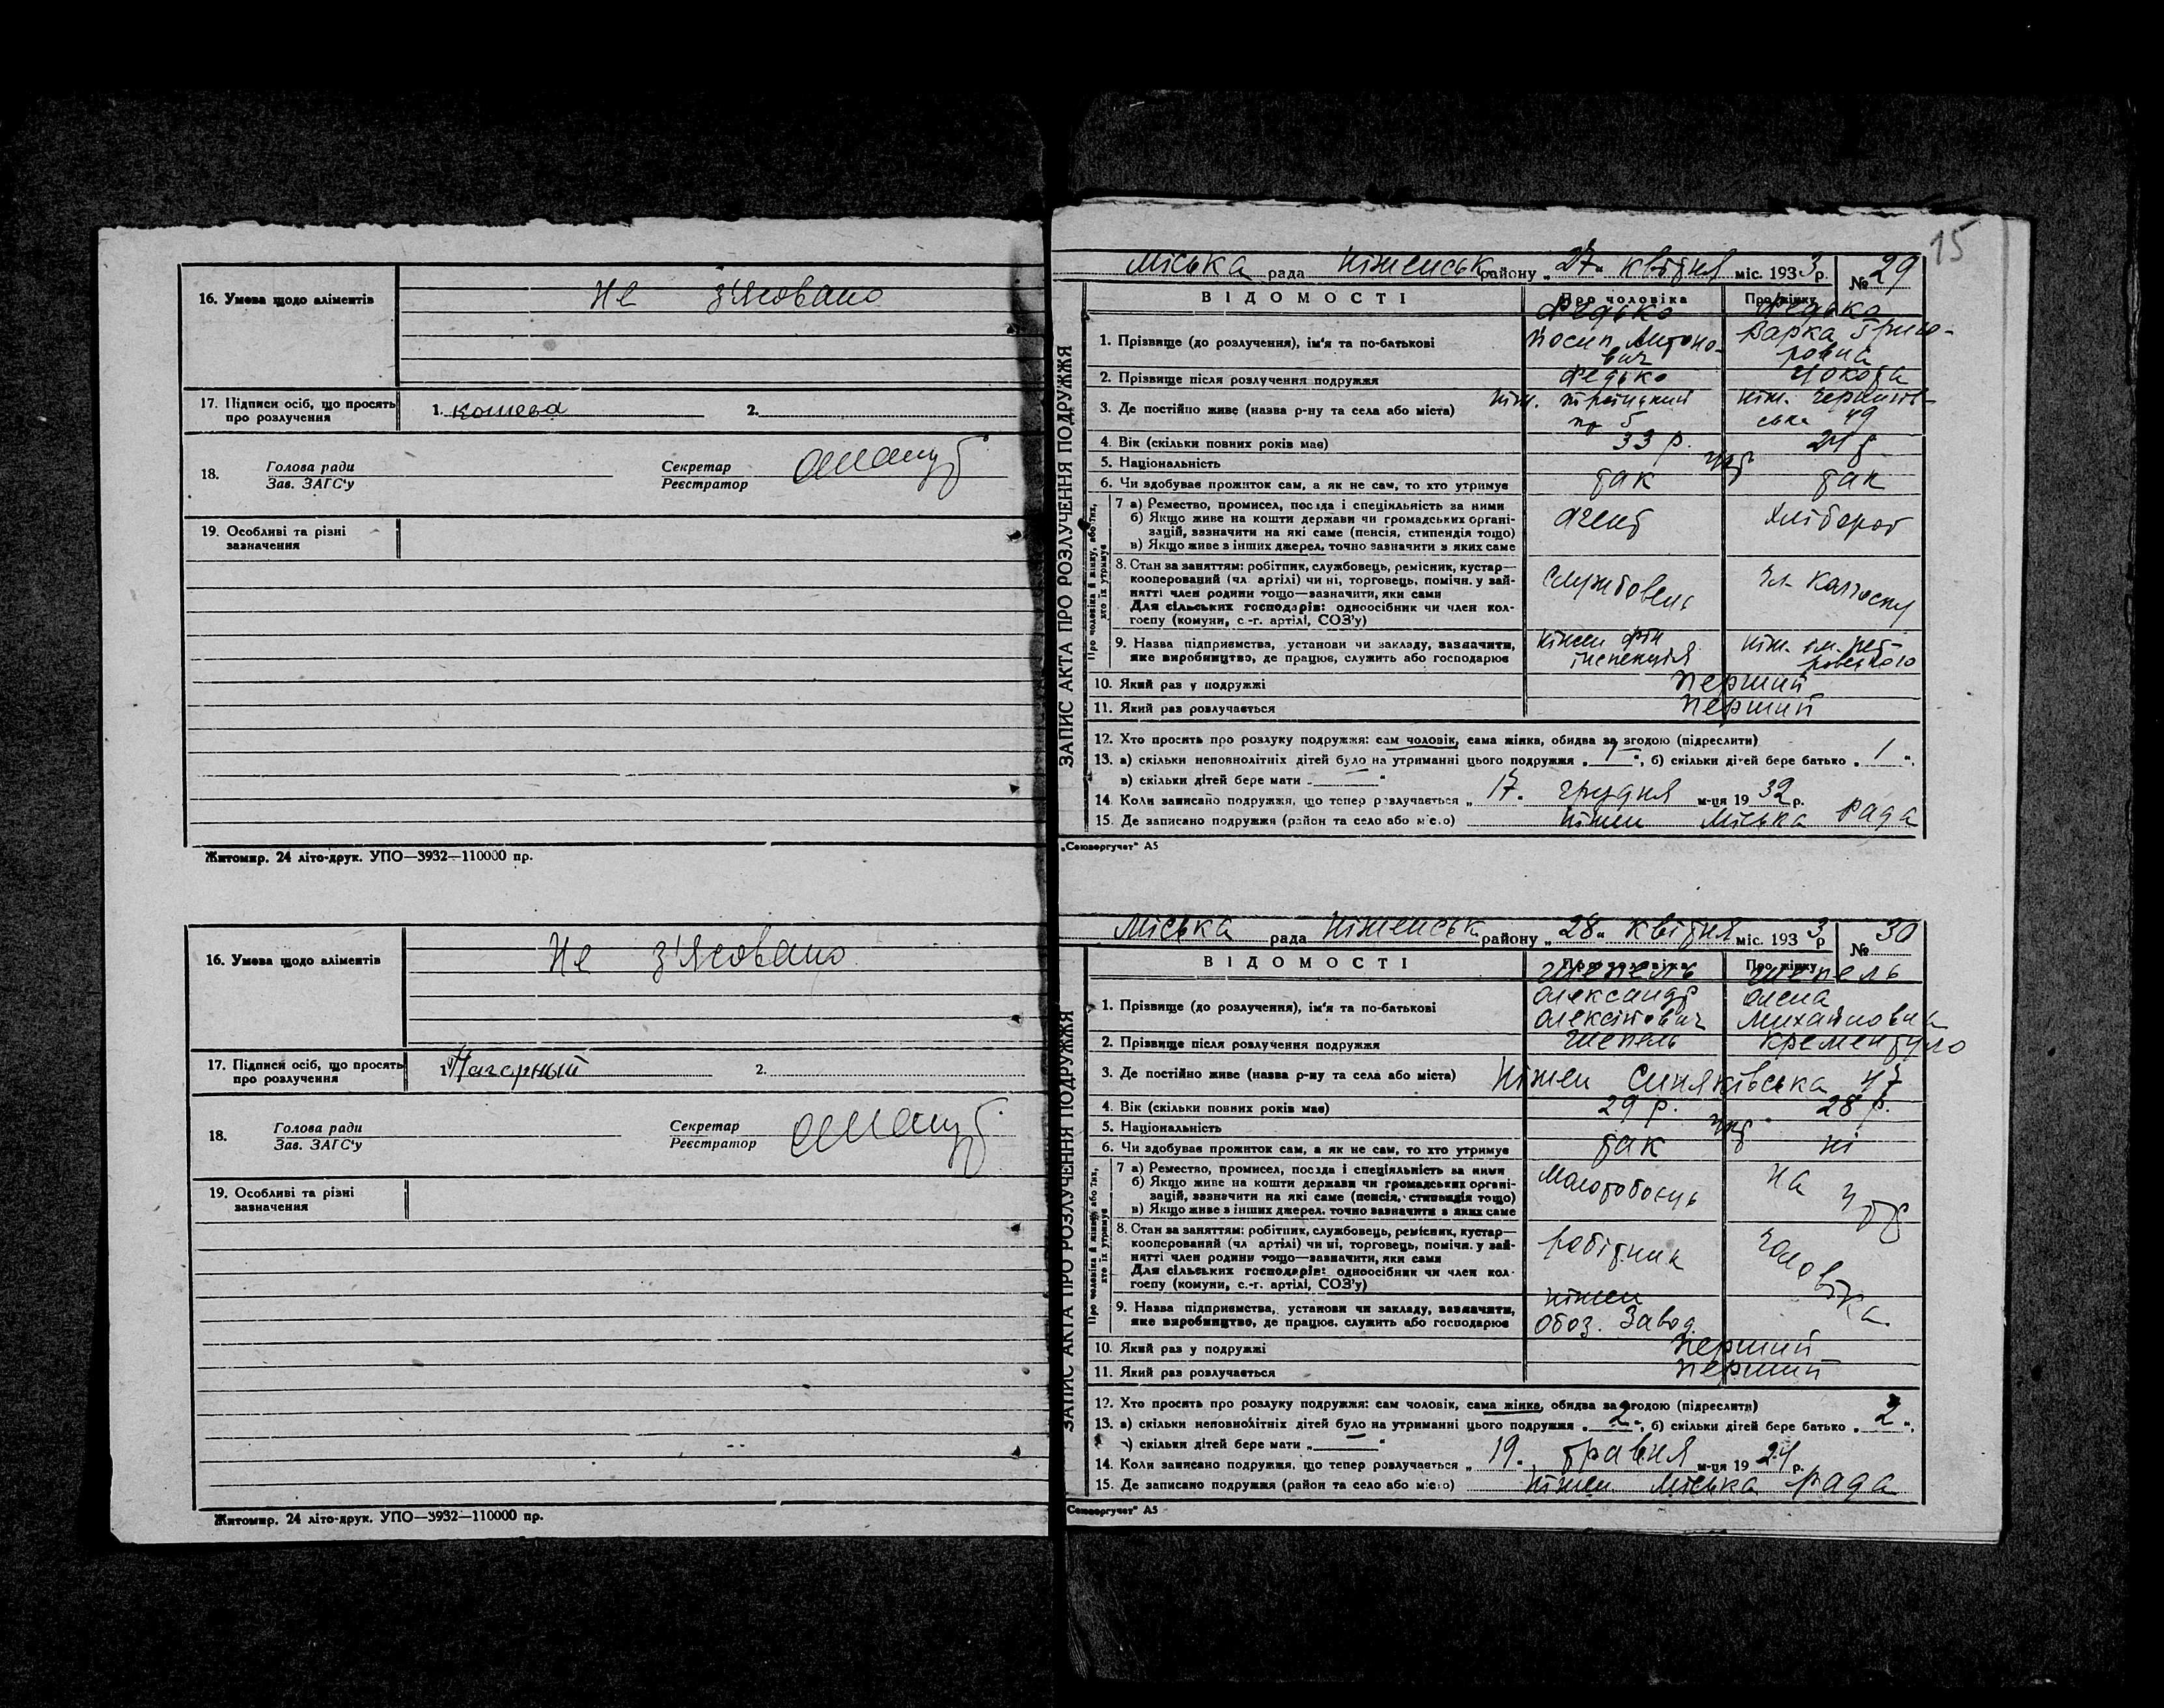 16. Умова щодо аліментів
Не з'ясовано
17. Підписи осіб, що просять
про розлучення
1.
2.
18.
Голова ради
Зав. ЗАГС'у
Секретар
Реєстратор
19. Особливі та різні
зазначення
Житомир. 24 літо-друк. УПО—3932—110000 пр.
16. Умова щодо аліментів
Не з'ясовано
17. Підписи осіб, що просять
про розлучення
1.
2.
18.
Голова ради
Зав. ЗАГС'у
Секретар
Реєстратор
19. Особливі та різні
зазначення
Житомир. 24 літо-друк. УПО—3932—110000 пр.
15
ЗАПИС АКТА ПРО РОЗЛУЧЕННЯ ПОДРУЖЖЯ
Міська рада Ніженськ району „27“ квітня міс. 1933 р. № 29
ВІДОМОСТІ Про чоловіка Про жінку
Федько Федько
1. Прізвище (до розлучення), ім'я та по-батькові Йосип Антоно- Варка Григо-
вич ровна
2. Прізвище після розлучення подружжя Федько
3. Де постійно живе (назва р-ну та села або міста) Ніж. Ніж. Чернигів-
5 ська 49
4. Вік (скільки повних років має) 33 р. 24 р.
5. Національність укр
6. Чи здобуває прожиток сам, а як не сам, то хто утримує так так
Про чоловіка й жінку, або тих, хто їх утримує
7 а) Ремество, промисел, посада і спеціяльність за ними
б) Якщо живе на кошти держави чи громадських органі-
зацій, зазначити на які саме (пенсія, стипендія тощо)
в) Якщо живе з інших джерел, точно зазначити з яких саме
Агент Хлібороб
8. Стан за заняттям: робітник, службовець, ремісник, кустар—
кооперований (чл. артілі) чи ні, торговець, помічн. у зай-
нятті член родини тощо—зазначити, яки сами
Для сільських господарів: одноосібник чи член кол-
госпу (комуни, с.-г. артілі, СОЗ'у)
Службовець чл. колгоспу
9. Назва підприємства, установи чи закладу, зазначити,
яке виробництво, де працює, служить або господарює
Ніжен фін Ніж. ім. Пет-
інспекція ровського
10. Який раз у подружжі Перший
11. Який раз розлучається Перший
12. Хто просить про розлуку подружжя: сам чоловік, сама жінка, обидва за згодою (підреслити)
13. а) скільки неповнолітніх дітей було на утриманні цього подружжя „1“, б) скільки дітей бере батько „1“,
в) скільки дітей бере мати „—“
14. Коли записано подружжя, що тепер розлучається „17. грудня м-ця 1932 р.
15. Де записано подружжя (район та село або місто) Ніжен Міська рада
„Союзоргучет“ А5
ЗАПИС АКТА ПРО РОЗЛУЧЕННЯ ПОДРУЖЖЯ
Міська рада Ніженськ району „28“ квітня міс. 1933 р № 30
ВІДОМОСТІ Про чоловіка Про жінку
Шепель Шепель
1. Прізвище (до розлучення), ім'я та по-батькові Олександр Олена
Олексійович Михайловна
2. Прізвище після розлучення подружжя Шепель
3. Де постійно живе (назва р-ну та села або міста) Ніжен Синяківська 47
4. Вік (скільки повних років має) 29 р. 28 р.
5. Національність укр
6. Чи здобуває прожиток сам, а як не сам, то хто утримує так ні
Про чоловіка й жінку, або тих, хто їх утримує
7 а) Ремество, промисел, посада і спеціяльність за ними
б) Якщо живе на кошти держави чи громадських органі-
зацій, зазначити на які саме (пенсія, стипендія тощо)
в) Якщо живе з інших джерел, точно зазначити з яких саме
Молотобоєць На утр
8. Стан за заняттям: робітник, службовець, ремісник, кустар—
кооперований (чл. артілі) чи ні, торговець, помічн. у зай-
нятті член родини тощо—зазначити, яки сами
Для сільських господарів: одноосібник чи член кол-
госпу (комуни, с.-г. артілі, СОЗ'у)
робітник чоловіка.
9. Назва підприємства, установи чи закладу, зазначити,
яке виробництво, де працює, служить або господарює
Ніжен
Обоз. Завод
10. Який раз у подружжі Перший
11. Який раз розлучається Перший
12. Хто просить про розлуку подружжя: сам чоловік, сама жінка, обидва за згодою (підреслити)
13. а) скільки неповнолітніх дітей було на утриманні цього подружжя „2“, б) скільки дітей бере батько „2“,
в) скільки дітей бере мати „—“
14. Коли записано подружжя, що тепер розлучається „19. травня м-ця 1924 р.
15. Де записано подружжя (район та село або місто) Ніжен Міська рада
„Союзоргучет“ А5